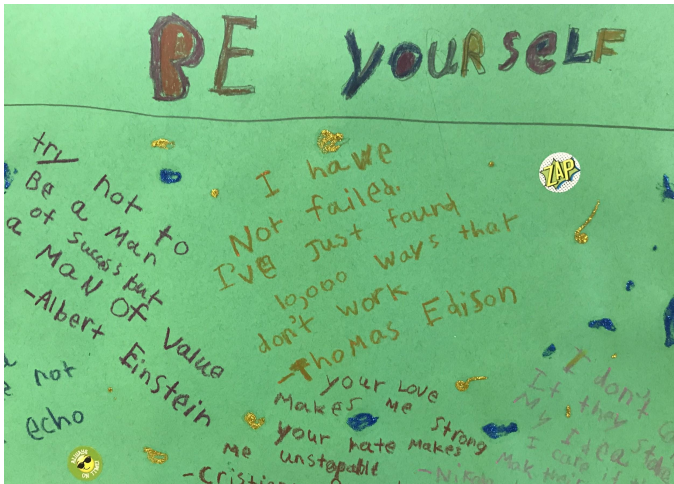 BE YOURSELF
try not to
Be a Man
of success but
a MaN OF Value
-Albert Einstein
I have
Not failed.
I've Just found
10,000 ways that
don't work
-Thomas Edison
ZAP
your Love
Makes Me Strong
your hate Makes
Me unstopable
-Cristia
not
echo
I don't
If they stole
My Idea
I care if th
Mak their
-Nikola